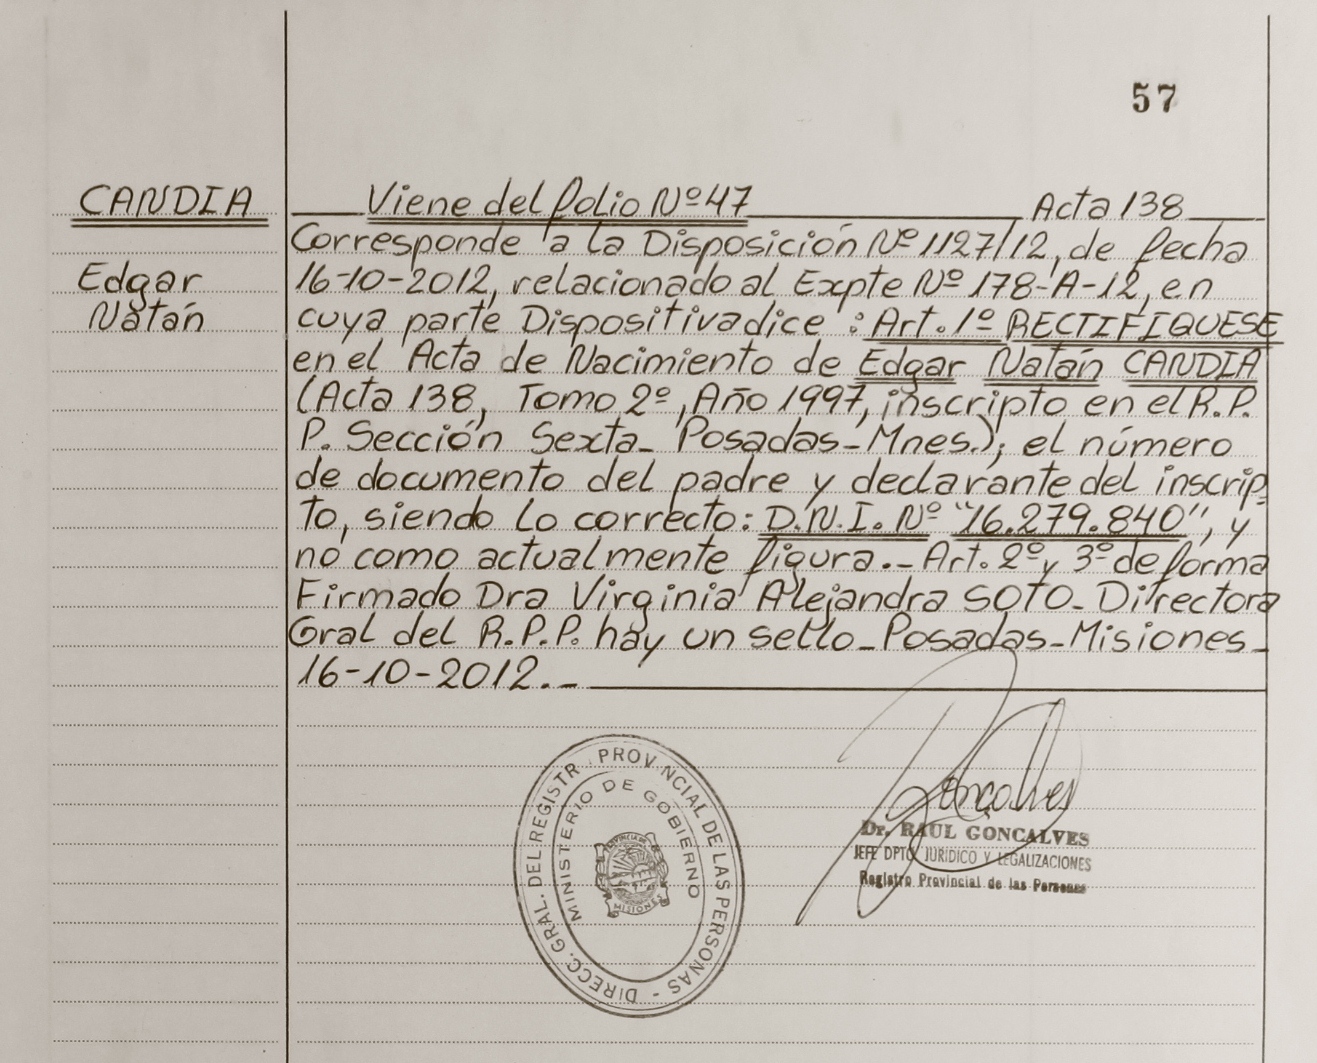 57
CANDIA
Edgar
Natán
Viene del folio Nº 47 Acta 138
Corresponde a la Disposición Nº 1127/12, de fecha
16-10-2012, relacionado al Expte Nº 178-A-12, en
cuya parte Dispositiva dice: Art. 1º RECTIFIQUESE
en el Acta de Nacimiento de Edgar Natán CANDIA
(Acta 138, Tomo 2º, Año 1997, inscripto en el R.P.
P. Sección Sexta_ Posadas_Mnes.); el número
de documento del padre y declarante del inscrip_
to, siendo lo correcto: D.N.I. Nº "16.279.840", y
no como actualmente figura._ Art. 2º y 3º de forma
Firmado Dra Virginia Alejandra SOTO_ Directora
Gral del R.P.P. hay un sello_Posadas_Misiones_
16-10-2012._
DIRECC. GRAL. DEL REGISTR. PROVINCIAL DE LAS PERSONAS -
MINISTERIO DE GOBIERNO
PROVINCIA DE
MISIONES
Goncalves
Dr. RAUL GONCALVES
JEFE DPTO. JURIDICO Y LEGALIZACIONES
Registro Provincial de las Personas